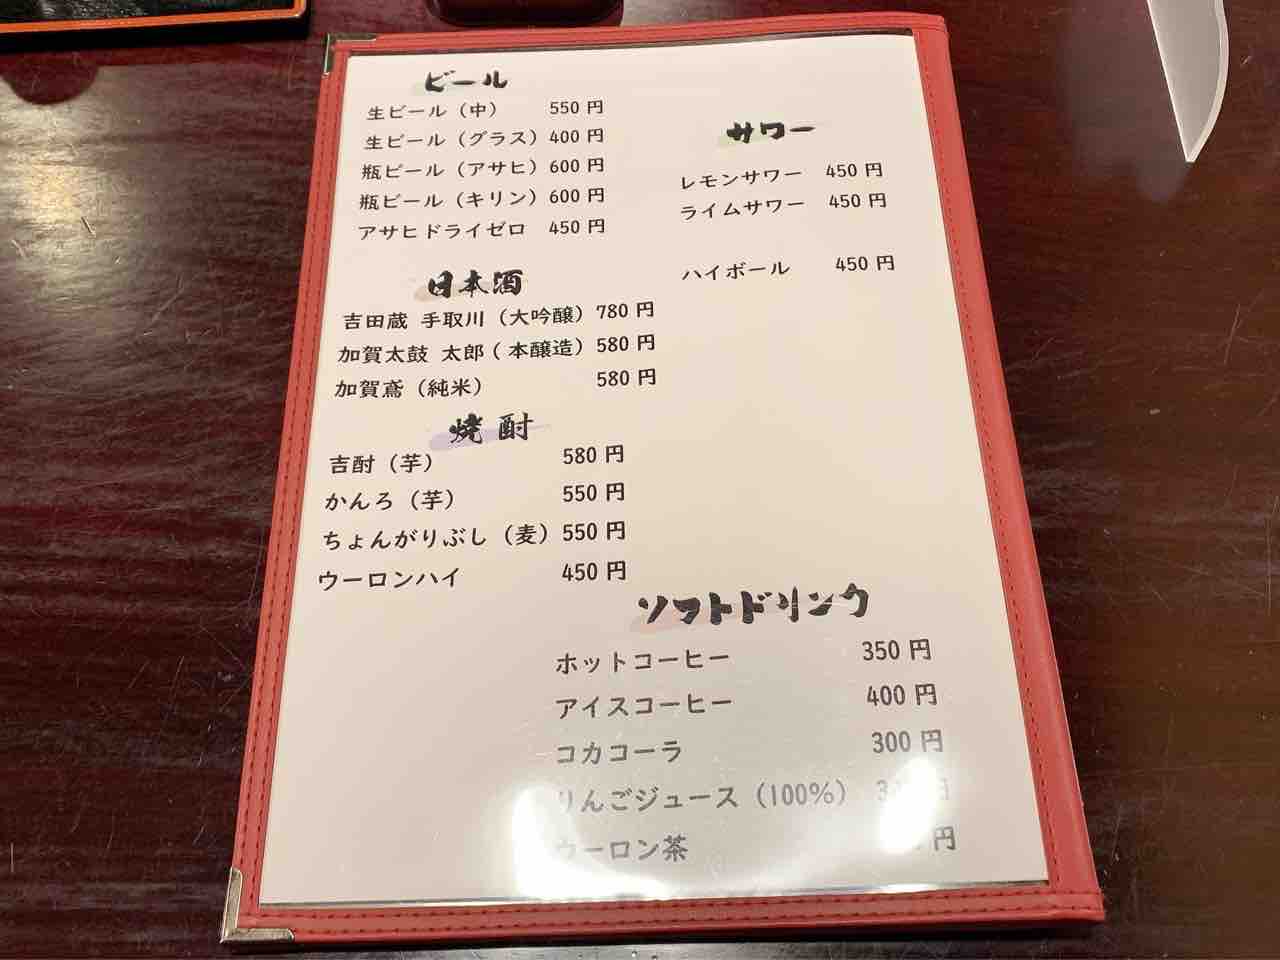 ビール
生ビール（中） 550円
生ビール（グラス）400円
瓶ビール（アサヒ）600円
瓶ビール（キリン）600円
アサヒドライゼロ 450円
日本酒
吉田蔵 手取川（大吟醸）780円
加賀太鼓 太郎（本醸造）580円
加賀鳶（純米） 580円
焼酎
吉酎（芋） 580円
かんろ（芋） 550円
ちょんがりぶし（麦）550円
ウーロンハイ 450円
サワー
レモンサワー 450円
ライムサワー 450円
ハイボール 450円
ソフトドリンク
ホットコーヒー 350円
アイスコーヒー 400円
コカコーラ 300円
りんごジュース（100％） 円
ウーロン茶 円